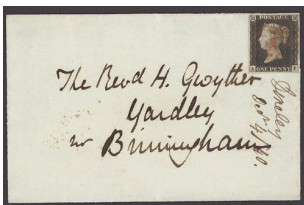 POSTAGE
ONE PENNY
The Revd H. Gwyther
Yardley
nr Birmingham